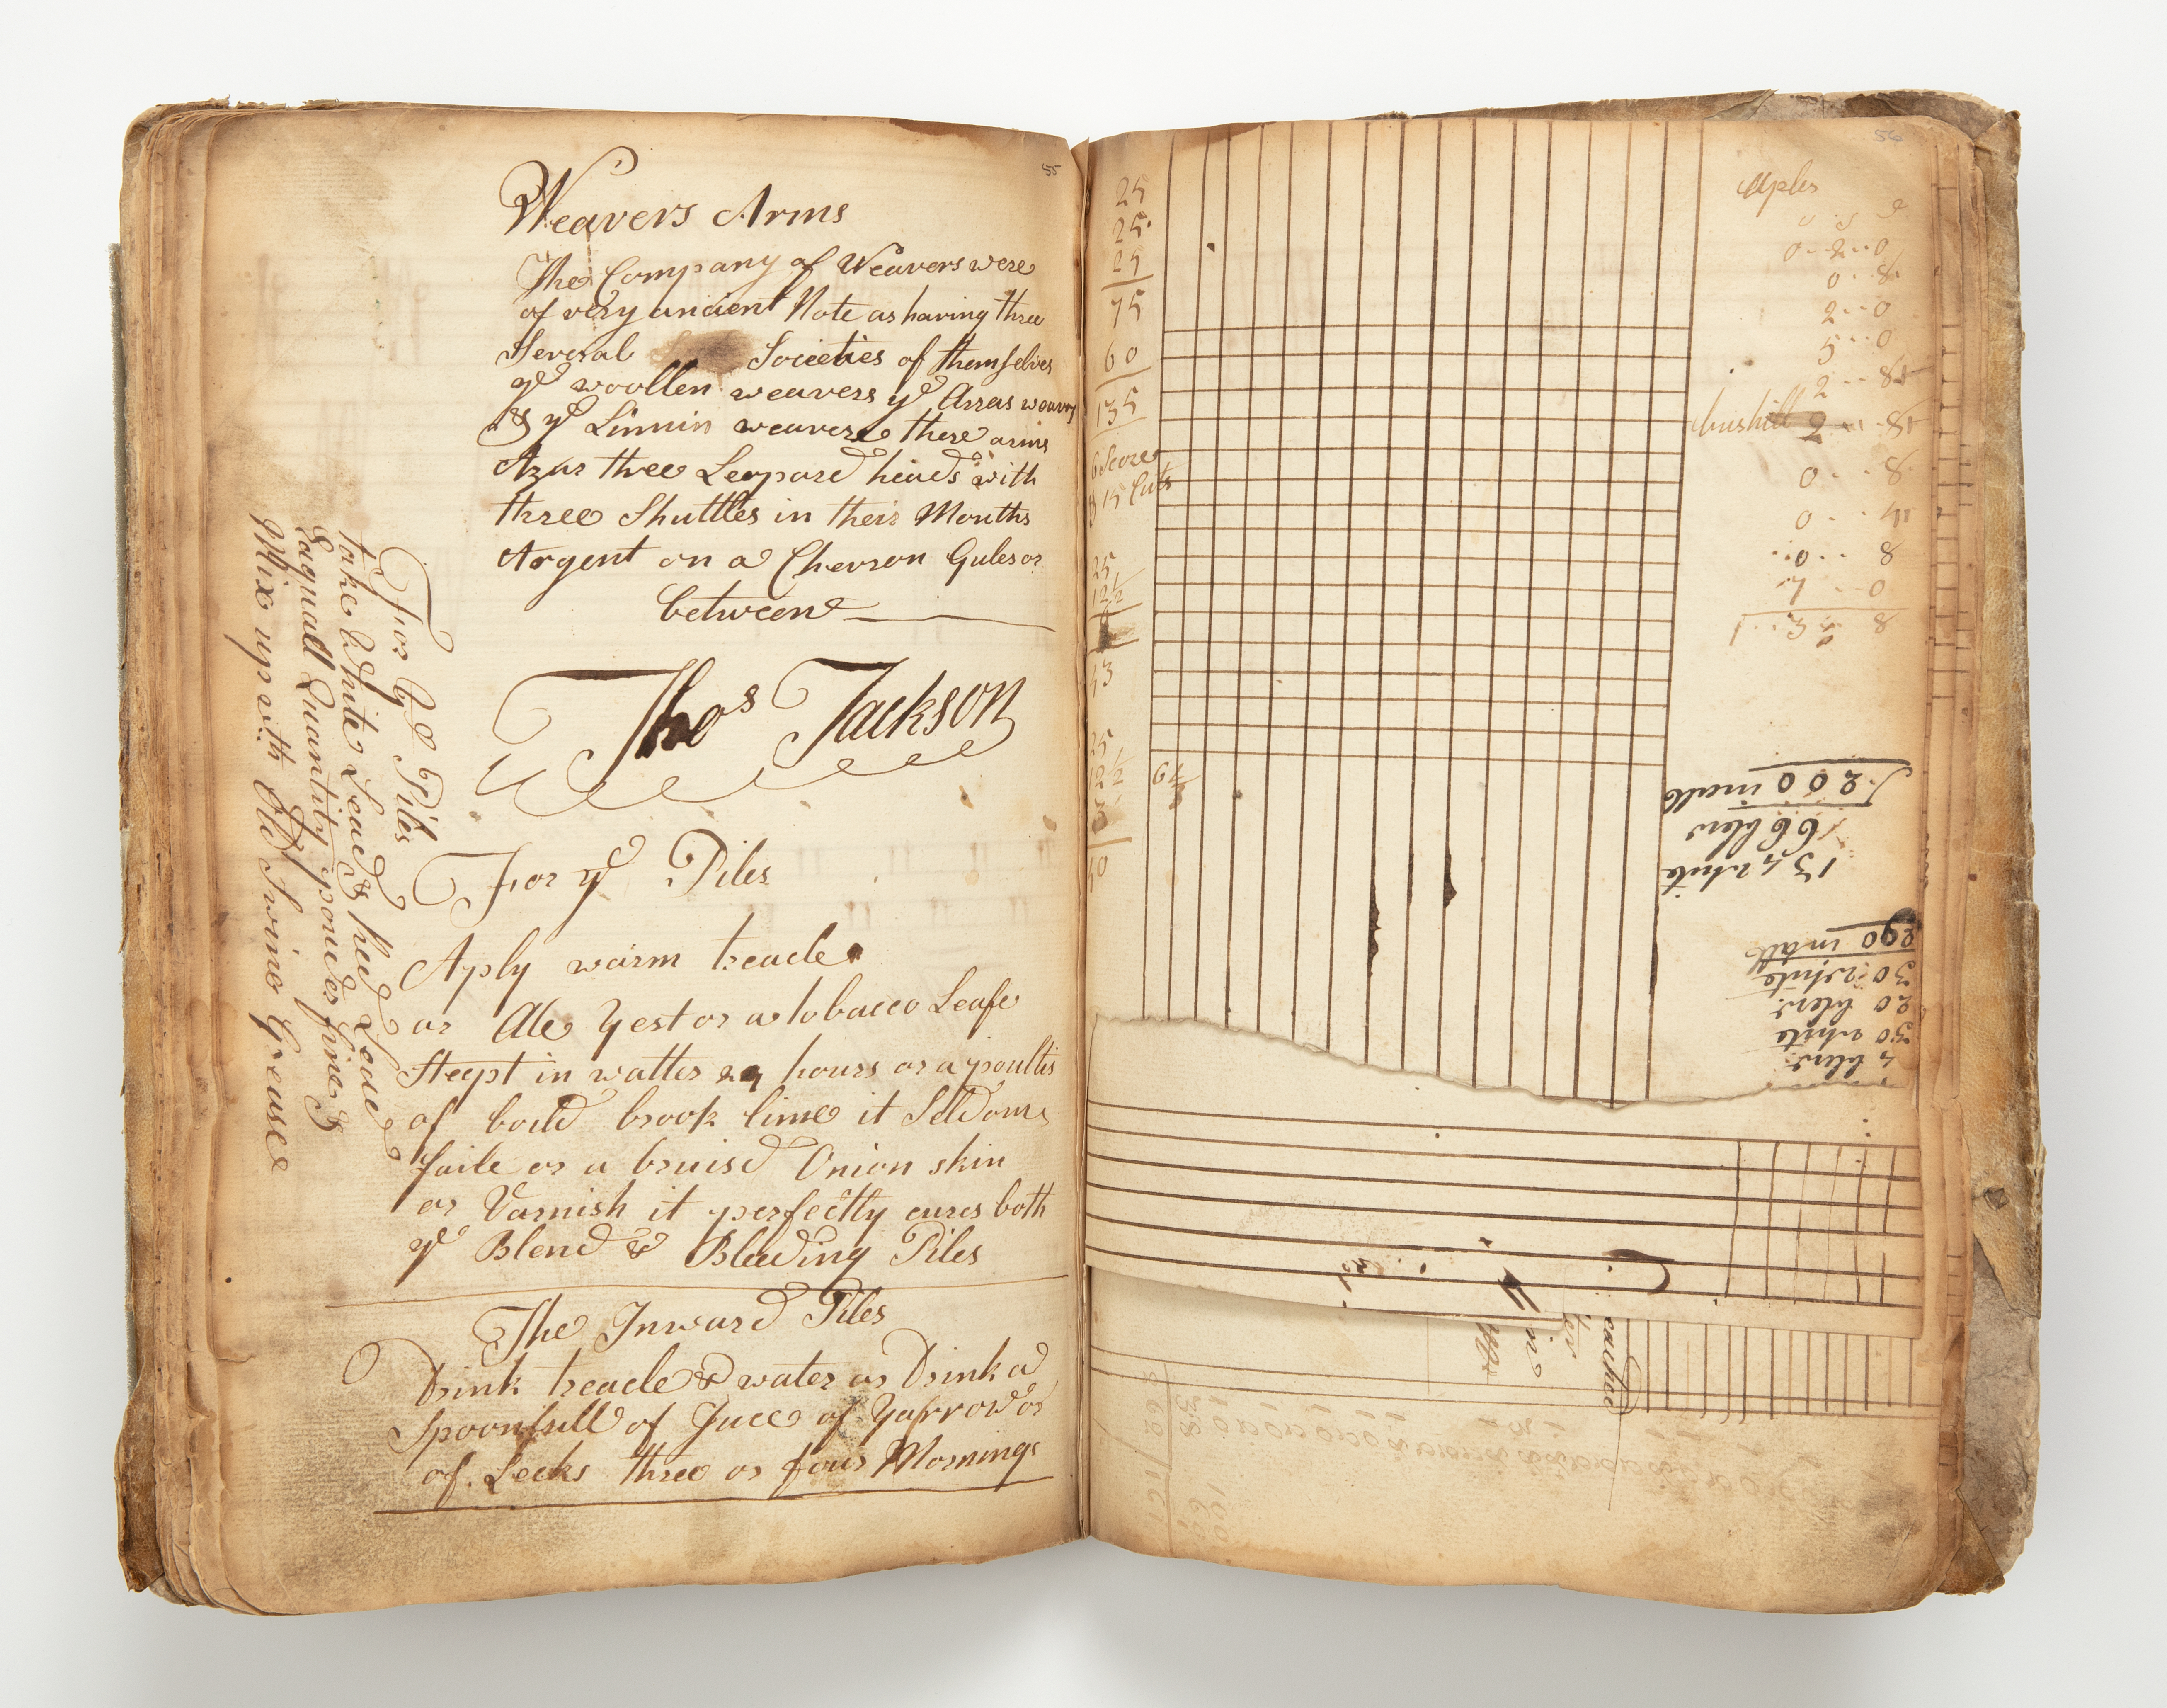 55
Weavers Arms
The Company of Weavers were
of very ancient Note as having three
Several Societies of themselves
ye woollen weavers ye Arras weavers
& ye Linnin weavers there arms
Azur three Leopard heads with
three Shuttles in their Mouths
Argent on a Chevron Gules or
between
Thos Jackson
For ye Piles
Aply warm treacle
or Ale Yest or a tobacco Leafe
Steept in watter 24 hours or a poultis
of boild brook lime it Seldome
faile or a bruisd Onion skin
or Varnish it perfectly cures both
ye Blend & Bleeding Piles
The Inward Piles
Drink treacle & water or Drink a
Spoonfull of Juce of Yarrow or
of Leeks three or four Mornings
For ye Piles
take White Lead & Red Lede
Eaquall Quantity powder fine &
Mix up with Old Swine Grease
56
25
25
25
75
60
135
6 Score
15 Cuts
25
12 1/2
43
25
12 1/2
40
Aples
0--2--0
8--0
0--2
0--5
18--2
bushill
8--0
0
8--0
200 in all
66 blew
134 white
290 in all
30 white
20 blew
30 white
4 blew
in